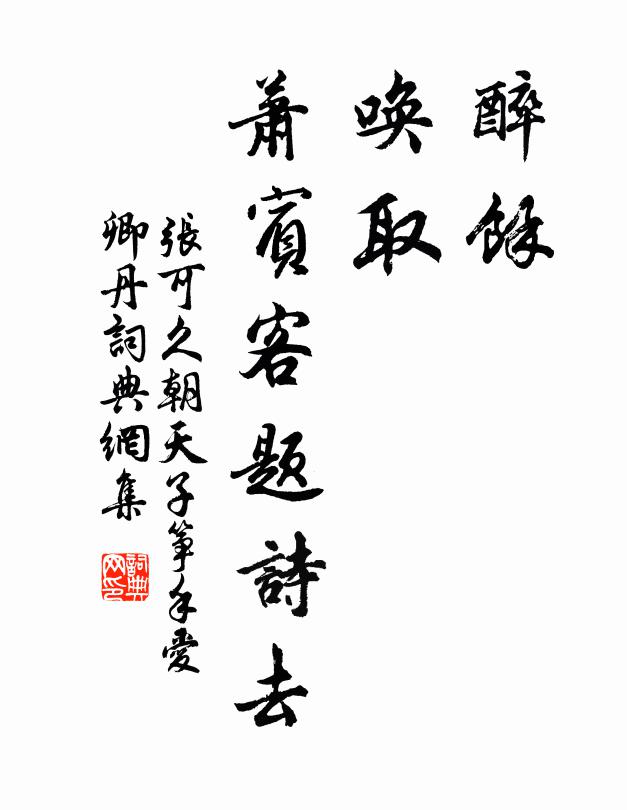 醉餘
喚取
蕭賓客題詩去
張可久朝天子箏手愛
卿丹詞典網集
詞典
网印